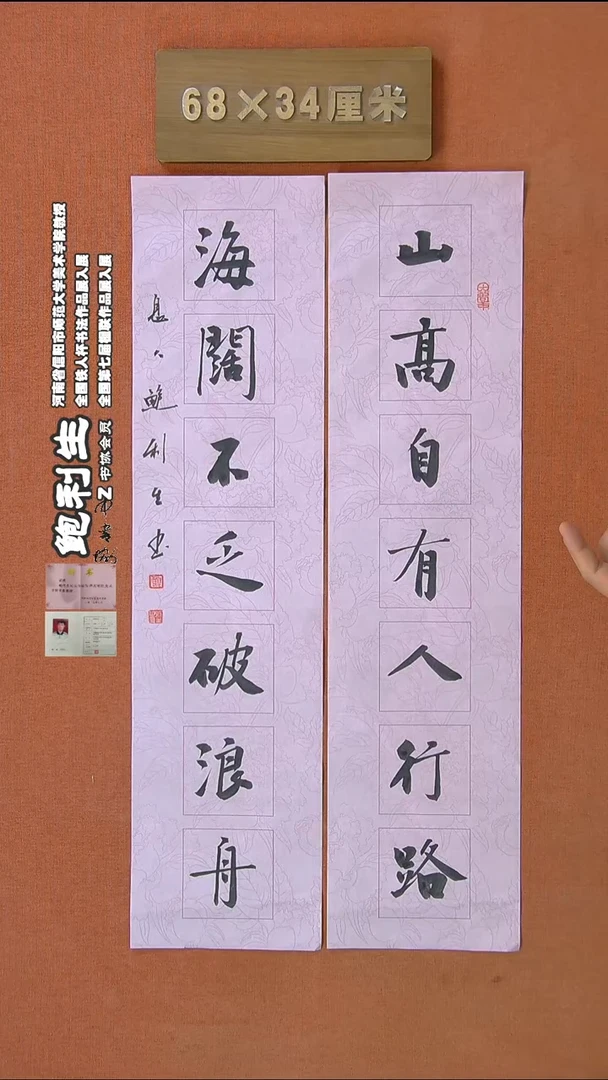 68×34厘米
山高自有人行路
海闊不乏破浪舟
鲍利生书
河南省信阳市师范大学美术学院教授
全国铁人杯书法作品展入展
全国第七届楹联作品展入展
鲍利生
书协会员